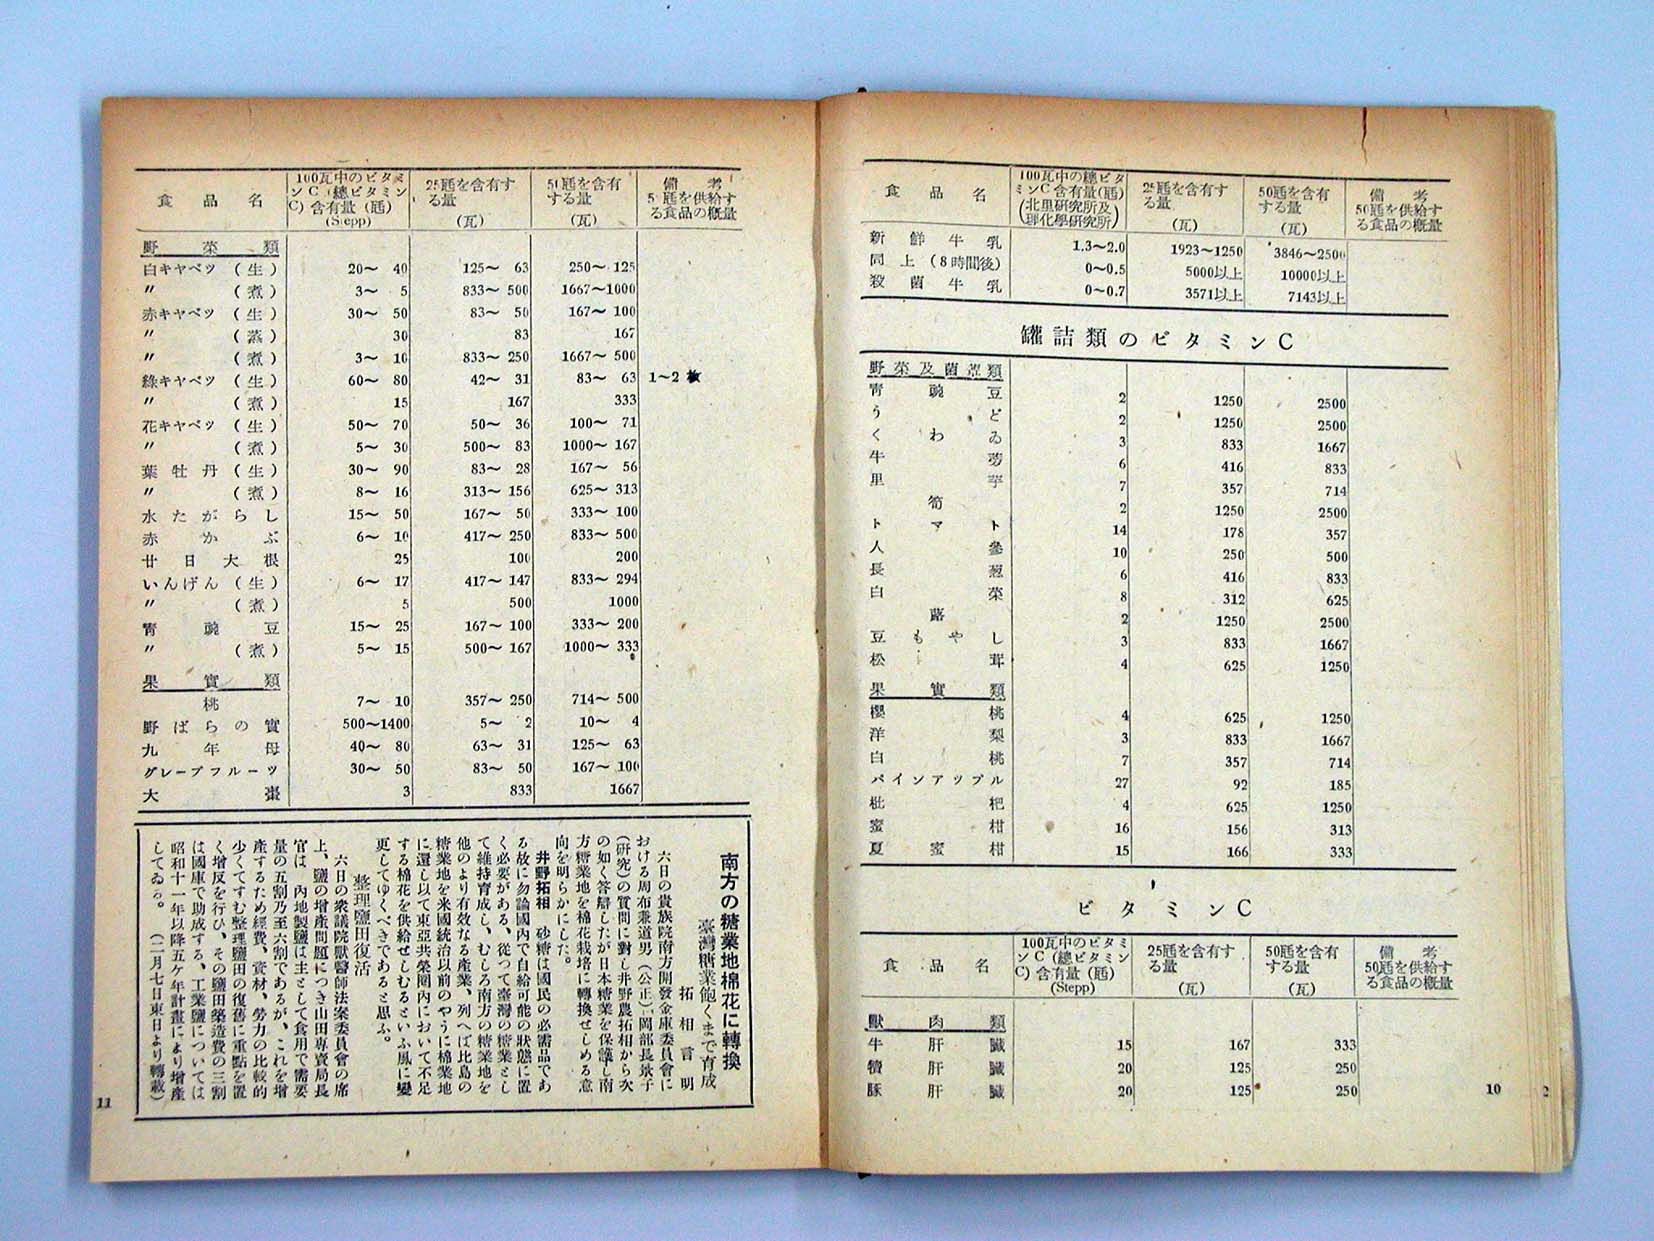 食品名 100瓦中の總ビタミンC含有量(瓱)(北里研究所及理化學研究所) 25瓱を含有する量(瓦) 50瓱を含有する量(瓦) 備考 50瓱を供給する食品の概量
新鮮牛乳 1.3〜2.0 1923〜1250 3846〜2500
同上(8時間後) 0〜0.5 5000以上 10000以上
殺菌牛乳 0〜0.7 3571以上 7143以上
罐詰類のビタミンC
野菜及菌蕈類
靑豌豆 2 1250 2500
うど 2 1250 2500
くわゐ 3 833 1667
牛蒡 6 416 833
里芋 7 357 714
筍 2 1250 2500
トマト 14 178 357
人參 10 250 500
長葱 6 416 833
白菜 8 312 625
蕗 2 1250 2500
豆もやし 3 833 1667
松茸 4 625 1250
果實類
櫻桃 4 625 1250
洋梨 3 833 1667
白桃 7 357 714
パインアップル 27 92 185
枇杷 4 625 1250
蜜柑 16 156 313
夏蜜柑 15 166 333
ビタミンC
食品名 100瓦中のビタミンC(總ビタミンC)含有量(瓱)(Stepp) 25瓱を含有する量(瓦) 50瓱を含有する量(瓦) 備考 50瓱を供給する食品の概量
獸肉類
牛肝臟 15 167 333
犢肝臟 20 125 250
豚肝臟 20 125 250
10
食品名 100瓦中のビタミンC(總ビタミンC)含有量(瓱)(Stepp) 25瓱を含有する量(瓦) 50瓱を含有する量(瓦) 備考 5瓱を供給する食品の概量
野菜類
白キヤベツ(生) 20〜40 125〜63 250〜125
〃(煮) 3〜5 833〜500 1667〜1000
赤キヤベツ(生) 30〜50 83〜50 167〜100
〃(蒸) 30 83 167
〃(煮) 3〜10 833〜250 1667〜500
綠キヤベツ(生) 60〜80 42〜31 83〜63 1〜2枚
〃(煮) 15 167 333
花キヤベツ(生) 50〜70 50〜36 100〜71
〃(煮) 5〜30 500〜83 1000〜167
葉牡丹(生) 30〜90 83〜28 167〜56
〃(煮) 8〜16 313〜156 625〜313
水たがらし 15〜50 167〜50 333〜100
赤かぶ 6〜10 417〜250 833〜500
廿日大根 25 100 200
いんげん(生) 6〜17 417〜147 833〜294
〃(煮) 5 500 1000
靑豌豆 15〜25 167〜100 333〜200
〃(煮) 5〜15 500〜167 1000〜333
果實類
桃 7〜10 357〜250 714〜500
野ばらの實 500〜1400 5〜2 10〜4
九年母 40〜80 63〜31 125〜63
グレープフルーツ 30〜50 83〜50 167〜100
大棗 3 833 1667
南方の糖業地棉花に轉換
臺灣糖業飽くまで育成
拓相言明
六日の貴族院南方開發金庫委員會に
おける周布兼道男(公正)岡部長景子
(研究)の質問に對し井野農拓相から次
の如く答辯したが日本糖業を保護し南
方糖業地を棉花栽培に轉換せしめる意
向を明らかにした。
井野拓相 砂糖は國民の必需品であ
る故に勿論國內で自給可能の狀態に置
く必要がある、從つて臺灣の糖業とし
て維持育成し、むしろ南方の糖業地を
他のより有效なる產業、列へば比島の
糖業地を米國統治以前のやうに棉業地
に還し以て東亞共榮圈內において不足
する棉花を供給せしむるといふ風に變
更してゆくべきであると思ふ。
整理鹽田復活
六日の衆議院獸醫師法案委員會の席
上、鹽の增產問題につき山田專賣局長
官は 內地製鹽は主として食用で需要
量の五割乃至六割であるが、これを增
產するため經費、資材、勞力の比較的
少くてすむ整理鹽田の復舊に重點を置
く增反を行ひ、その鹽田築造費の三割
は國庫で助成する、工業鹽については
昭和十一年以降五ケ年計畫により增產
してゐる。 (二月七日東日より轉載)
11